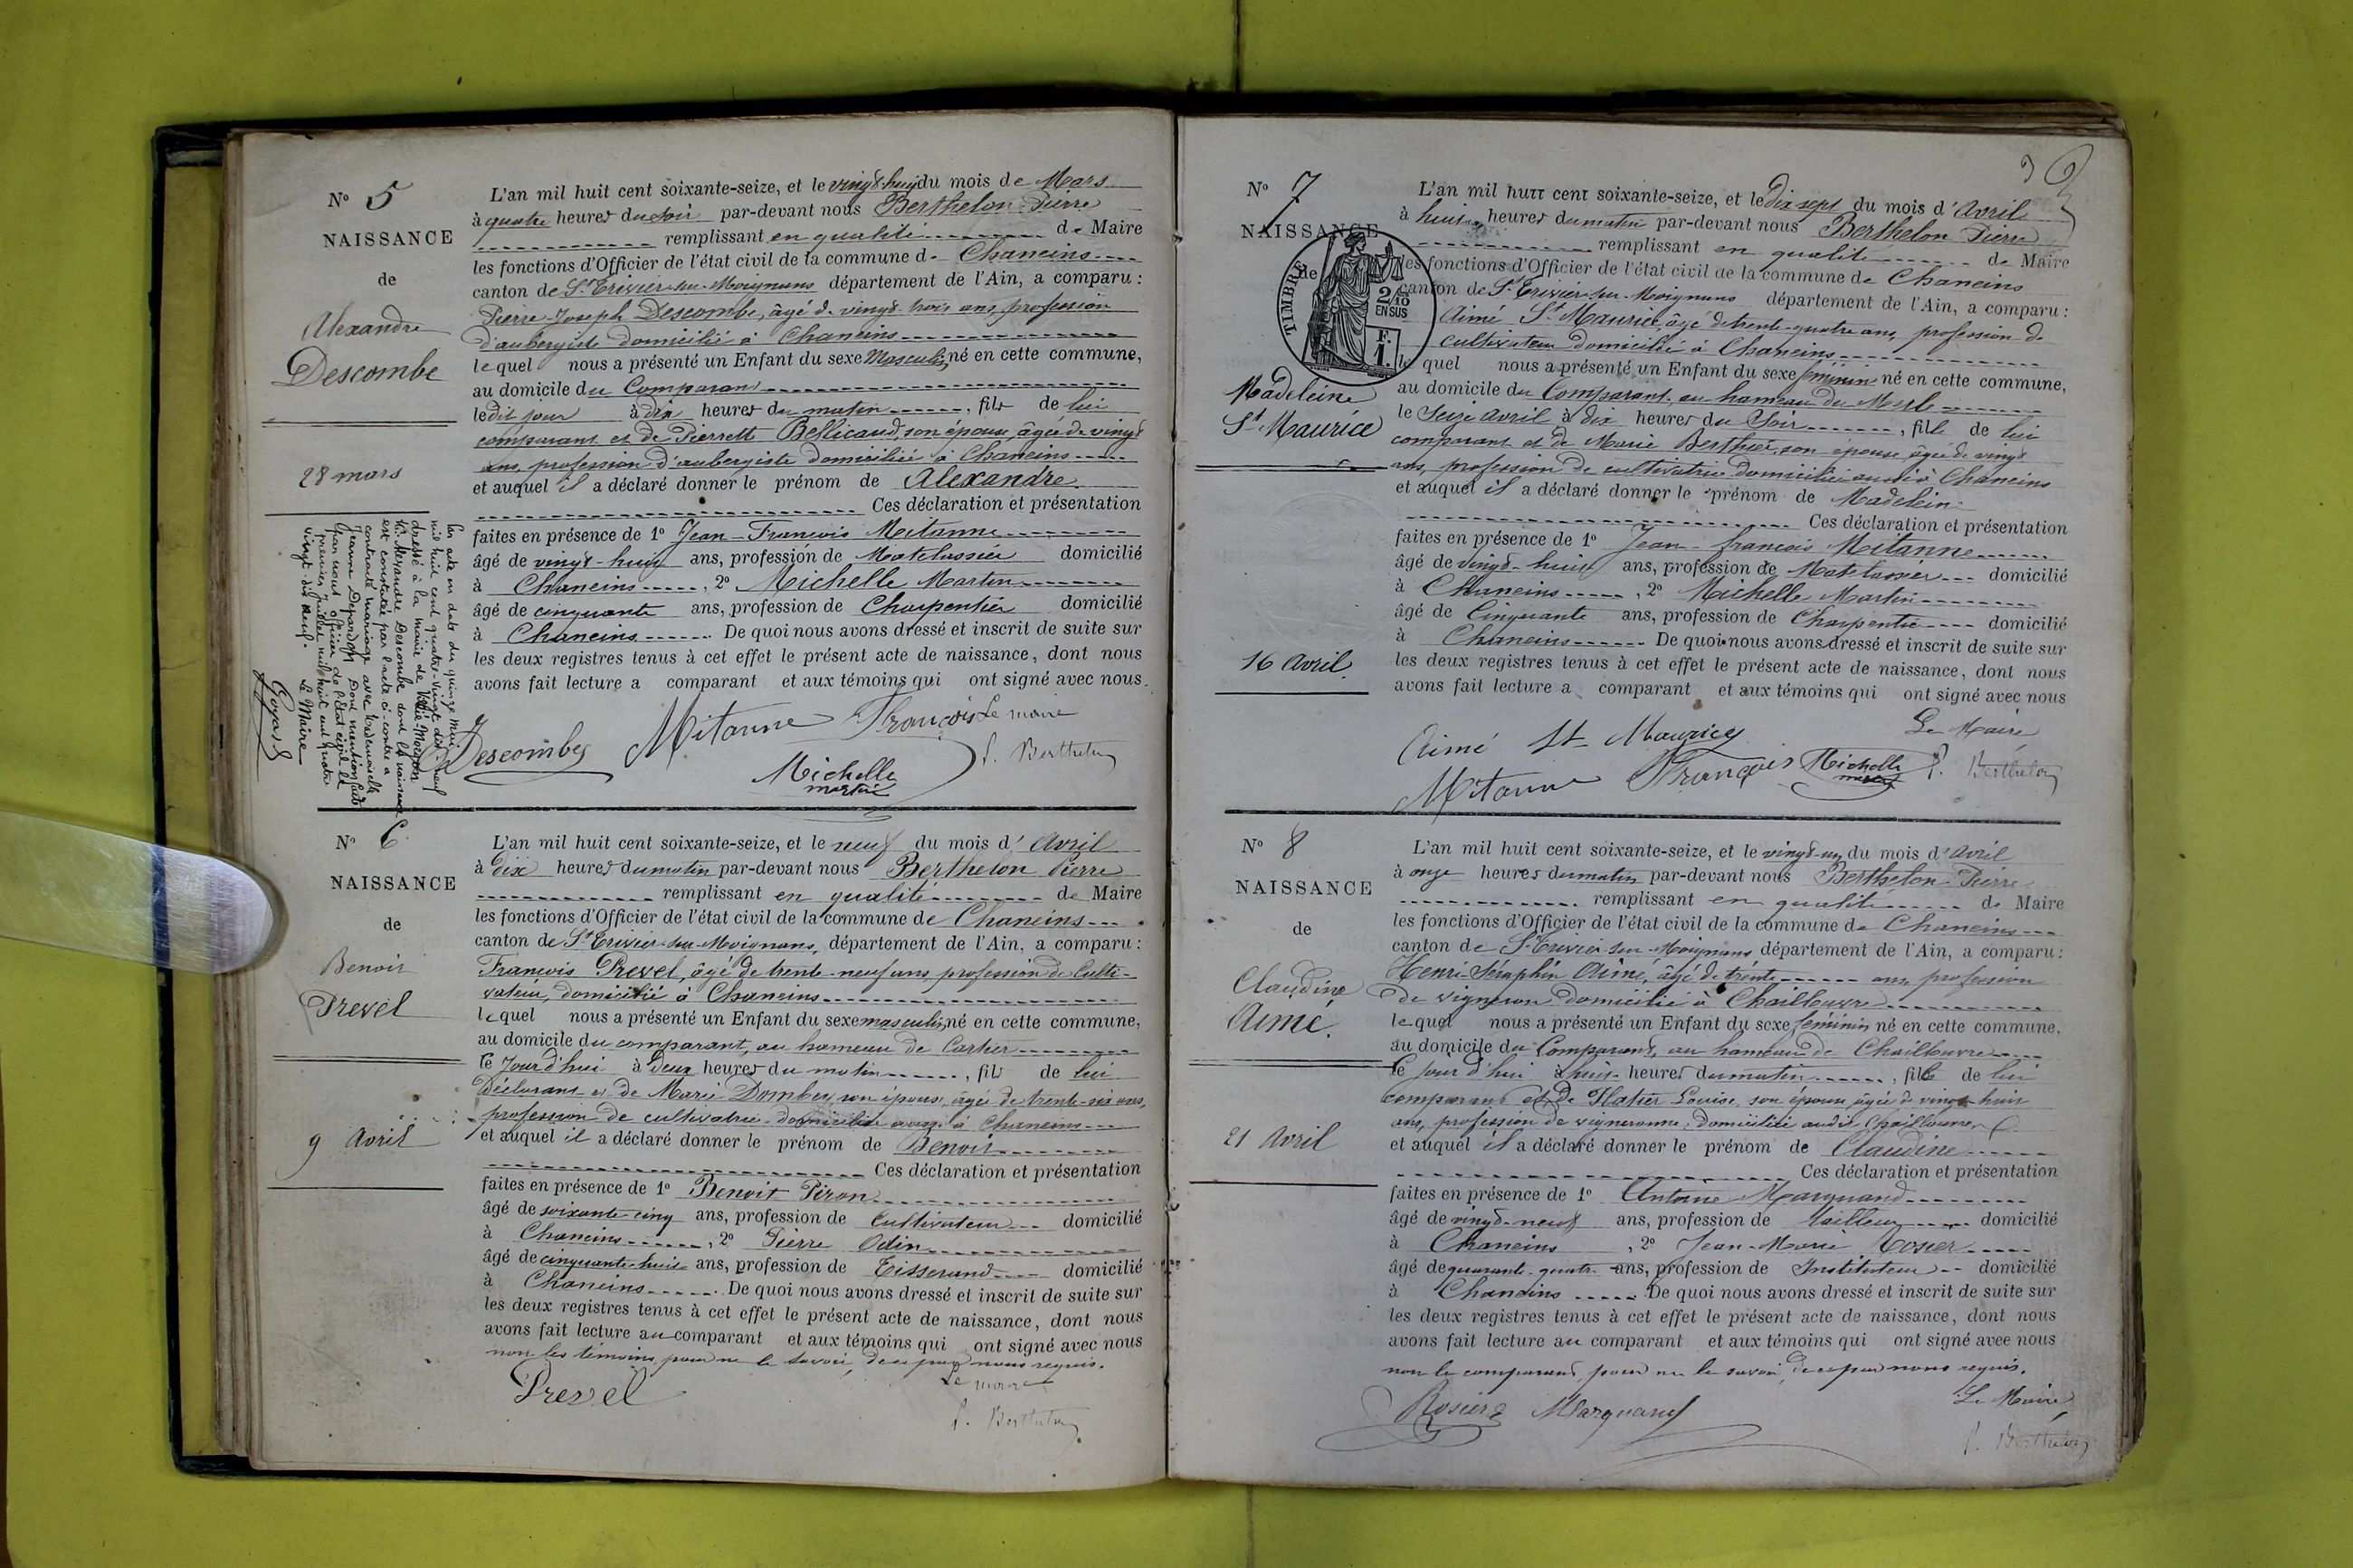 N° 5
NAISSANCE
de
Alexandre
Descombe
28 mars
L'an mil huit cent soixante-seize, et le vingt-huit du mois de Mars
à quatre heures du soir par-devant nous Berthelon Pierre
remplissant en qualité de Maire
les fonctions d'Officier de l'état civil de la commune de Chaneins
canton de St Trivier-sur-Moignans département de l'Ain, a comparu :
Pierre-Joseph Descombe, âgé de vingt-trois ans, profession
d'aubergiste domicilié à Chaneins
lequel nous a présenté un Enfant du sexe Masculin, né en cette commune,
au domicile du Comparant
le dit jour à dix heures du matin, fils de lui
comparant et de Pierrette Bellicaud, son épouse, âgée de vingt
ans, profession d'aubergiste domiciliée à Chaneins
et auquel il a déclaré donner le prénom de Alexandre
Ces déclaration et présentation
faites en présence de 1° Jean-François Mitanne
âgé de vingt-huit ans, profession de Matelassier domicilié
à Chaneins, 2° Michelle Martin
âgé de cinquante ans, profession de Charpentier domicilié
à Chaneins. De quoi nous avons dressé et inscrit de suite sur
les deux registres tenus à cet effet le présent acte de naissance, dont nous
avons fait lecture a comparant et aux témoins qui ont signé avec nous.
Descombes Mitanne François Le maire
Michelle martin P. Berthelon
Par acte en date du quinze Mai
mil huit cent quatre-vingt dix-neuf
dressé à la mairie de
M. Alexandre Descombe dont la naissance
est constatée par l'acte ci-contre a
contracté mariage avec Mademoiselle
Jeanne Depardon Dont mention faite
par nous officier de l'état civil le
premier Juillet mil huit cent quatre
vingt-dix neuf.
Le Maire
Goyard
N° 6
NAISSANCE
de
Benoit
Prevel
9 Avril
L'an mil huit cent soixante-seize, et le neuf du mois d' Avril
à dix heures du matin par-devant nous Berthelon Pierre
remplissant en qualité de Maire
les fonctions d'Officier de l'état civil de la commune de Chaneins
canton de St Trivier-sur-Moignans, département de l'Ain, a comparu :
François Prevel, âgé de trente-neuf ans, profession de Culti-
vateur, domicilié à Chaneins
lequel nous a présenté un Enfant du sexe masculin, né en cette commune,
au domicile du comparant, au hameau de Cartier
le Jour d'hui à Deux heures du matin, fils de lui
Déclarant et de Marie Dombey, son épouse, âgée de trente-six ans,
profession de cultivatrice domiciliée aussi à Chaneins
et auquel il a déclaré donner le prénom de Benoit
Ces déclaration et présentation
faites en présence de 1° Benoit Piron
âgé de soixante-cinq ans, profession de Cultivateur domicilié
à Chaneins, 2° Pierre Odin
âgé de cinquante-huit ans, profession de Tisserand domicilié
à Chaneins. De quoi nous avons dressé et inscrit de suite sur
les deux registres tenus à cet effet le présent acte de naissance, dont nous
avons fait lecture au comparant et aux témoins qui ont signé avec nous
non les témoins pour ne le savoir, de ce par nous requis.
Prevel Le maire
P. Berthelon
3
N° 7
NAISSANCE
de
TIMBRE
2/10 EN SUS
F. 1.
Madeleine
St Maurice
16 Avril
L'an mil huit cent soixante-seize, et le Dix sept du mois d' Avril
à huit heures du matin par-devant nous Berthelon Pierre
remplissant en qualité de Maire
les fonctions d'Officier de l'état civil de la commune de Chaneins
canton de St Trivier-sur-Moignans département de l'Ain, a comparu :
Aimé St Maurice, âgé de trente-quatre ans, profession de
cultivateur domicilié à Chaneins
lequel nous a présenté un Enfant du sexe féminin né en cette commune,
au domicile du Comparant, au hameau du
le Seize Avril à dix heures du Soir, fille de lui
comparant et de Marie Berthier, son épouse, âgée de vingt
ans, profession de cultivatrice domiciliée aussi à Chaneins
et auquel il a déclaré donner le prénom de Madelein
Ces déclaration et présentation
faites en présence de 1° Jean-François Mitanne
âgé de vingt-huit ans, profession de Matelassier domicilié
à Chaneins, 2° Michelle Martin
âgé de Cinquante ans, profession de Charpentier domicilié
à Chaneins. De quoi nous avons dressé et inscrit de suite sur
les deux registres tenus à cet effet le présent acte de naissance, dont nous
avons fait lecture a comparant et aux témoins qui ont signé avec nous
Aimé St Maurice Le Maire
Mitanne François Michelle martin P. Berthelon
N° 8
NAISSANCE
de
Claudine
Aimé
21 Avril
L'an mil huit cent soixante-seize, et le vingt-un du mois d' Avril
à onze heures du matin par-devant nous Berthelon Pierre
remplissant en qualité de Maire
les fonctions d'Officier de l'état civil de la commune de Chaneins
canton de St Trivier-sur-Moignans département de l'Ain, a comparu :
Henri-Séraphin Aimé, âgé de trente ans, profession
de vigneron domicilié à Chaillouvre
lequel nous a présenté un Enfant du sexe féminin né en cette commune,
au domicile du Comparant, au hameau de Chaillouvre
le Jour d'hui à huit heures du matin, fille de lui
comparant et de Platier Louise, son épouse, âgée de vingt-huit
ans, profession de vigneronne, domiciliée audit Chaillouvre
et auquel il a déclaré donner le prénom de Claudine
Ces déclaration et présentation
faites en présence de 1° Antoine Marquand
âgé de vingt-neuf ans, profession de tailleur domicilié
à Chaneins, 2° Jean-Marie Rosier
âgé de quarante-quatre ans, profession de Instituteur domicilié
à Chaneins. De quoi nous avons dressé et inscrit de suite sur
les deux registres tenus à cet effet le présent acte de naissance, dont nous
avons fait lecture au comparant et aux témoins qui ont signé avec nous
non le comparant, pour ne le savoir, de ce par nous requis.
Rosier Marquand Le Maire
P. Berthelon